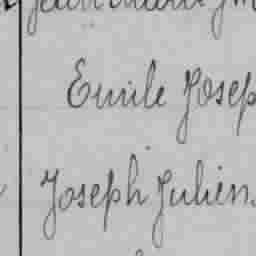 Emile Josep
Joseph Julien.